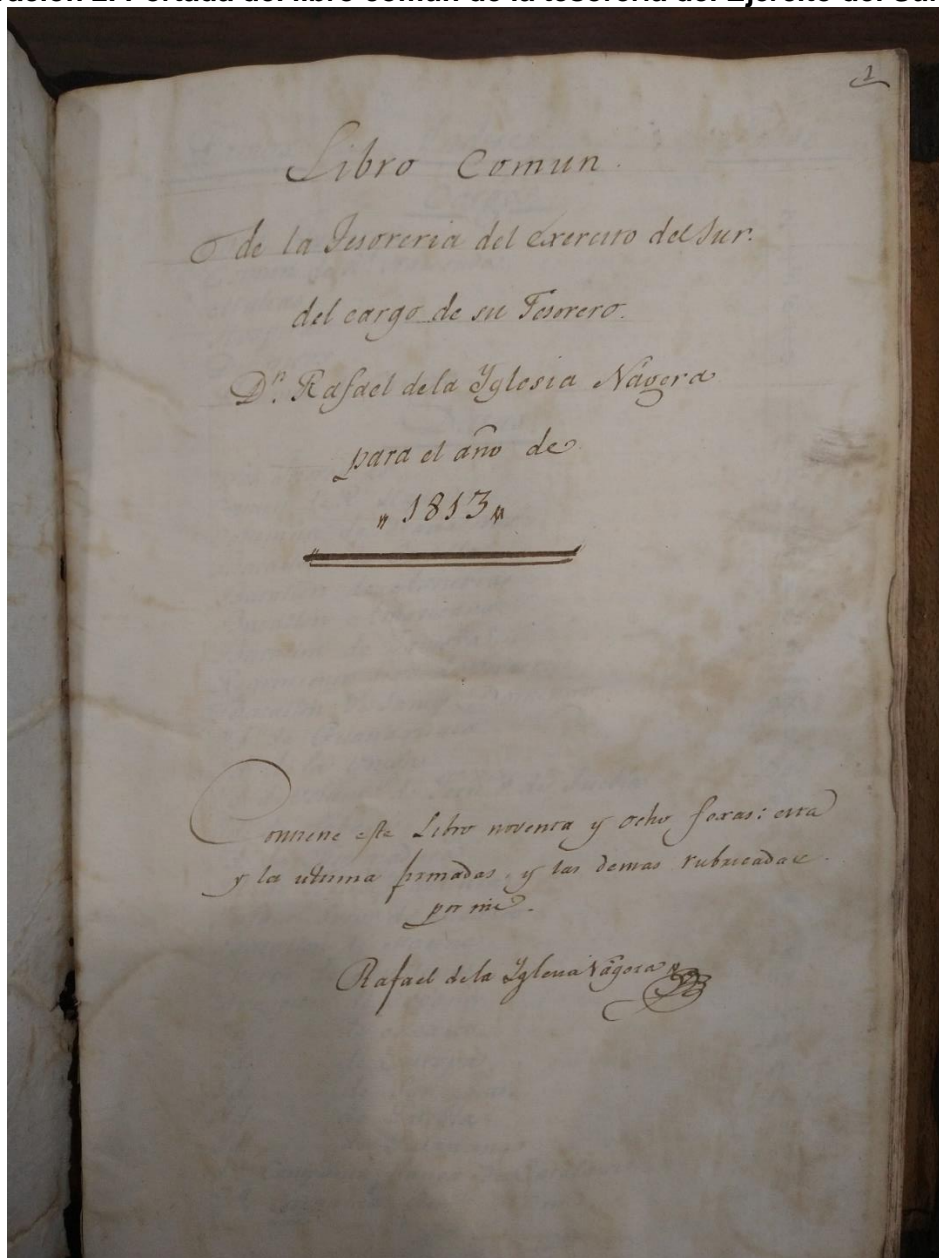 Portada del libro común de la tesorería del Ejército del Sur
1
Libro Comun.
de la Tesoreria del exercito del Sur.
del cargo de su Tesorero.
Dn. Rafael dela Yglesia Nágera
para el año de
„ 1813 „
Contiene este Libro noventa y ocho foxas: esta
y la ultima firmadas, y las demas rubricadas
por mi.
Rafael dela Yglesia Nágera